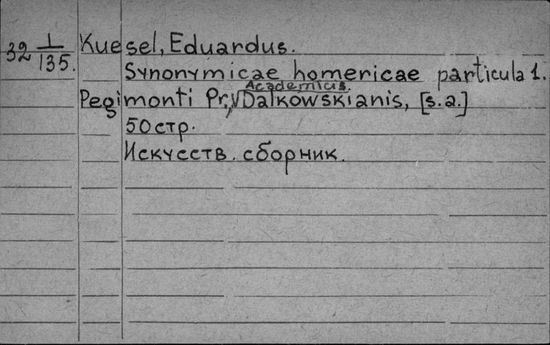 32 1/135. Kuesel, Eduardus.
Synonymicae homericae particula 1.
Academicis.
Pegimonti Pr., V Dalkowskianis, [s.a.]
50 стр.
Искусств. сборник.